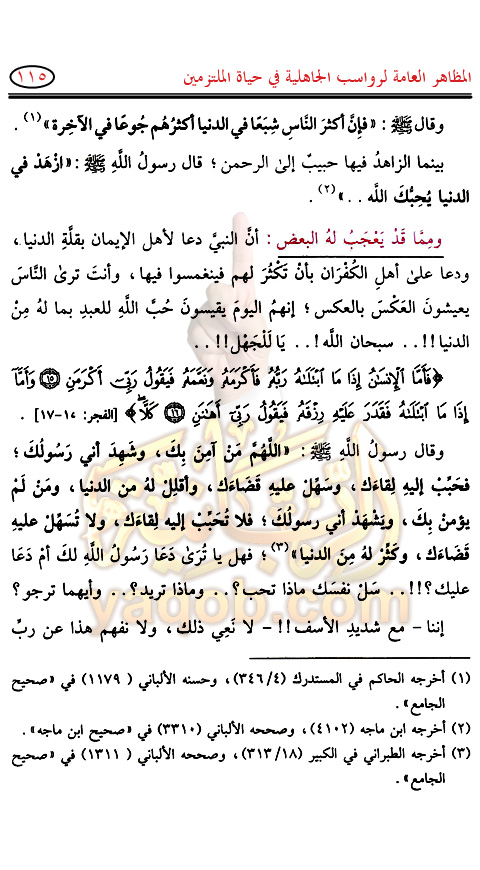 المظاهر العامة لرواسب الجاهلية في حياة الملتزمين ١١٥
وقال ﷺ : «فإِنَّ أكثرَ النَّاسِ شِبَعًا في الدنيا أكثرُهُم جُوعًا في الآخِرة»(١) .
بينما الزاهدُ فيها حبيبٌ إلى الرحمن ؛ قال رسولُ اللَّهِ ﷺ : «ازْهَدْ في
الدنيا يُحِبُّكَ اللَّه . .»(٢) .
ومِمَّا قَدْ يَعْجَبُ لهُ البعض : أنَّ النبيَّ دعا لأهل الإيمان بقلَّةِ الدنيا ،
ودعا على أهلِ الكُفْرَان بأنْ تَكْثُرَ لهم فينغمسوا فيها ، وأنتَ ترىٰ النَّاسَ
يعيشونَ العَكْسَ بالعكس ؛ إنهمُ اليومَ يقيسونَ حُبَّ اللَّهِ للعبدِ بما لهُ مِنْ
الدنيا !! . . سبحان اللَّه ! . . يَا لَلْجَهْل !! . .
﴿فَأَمَّا ٱلْإِنسَٰنُ إِذَا مَا ٱبْتَلَىٰهُ رَبُّهُۥ فَأَكْرَمَهُۥ وَنَعَّمَهُۥ فَيَقُولُ رَبِّىٓ أَكْرَمَنِ ۝١٥ وَأَمَّآ
إِذَا مَا ٱبْتَلَىٰهُ فَقَدَرَ عَلَيْهِ رِزْقَهُۥ فَيَقُولُ رَبِّىٓ أَهَٰنَنِ ۝١٦ كَلَّا ۖ﴾ [الفجر: ١٦-١٧] .
وقال رسولُ اللَّهِ ﷺ : «اللَّهُمَّ مَنْ آمِنَ بِكَ ، وشَهِدَ أني رَسولُكَ ؛
فحَبِّب إليهِ لِقاءَك ، وسَهِّلْ عليهِ قَضَاءَك ، وأقلِلْ لهُ من الدنيا ، ومَنْ لَمْ
يؤمنْ بِكَ ، ويَشْهَدْ أني رسولُكَ ؛ فلا تُحَبِّبْ إليه لِقاءَك ، ولا تُسَهِّلْ عليهِ
قَضَاءَك ، وكَثِّرْ لهُ مِنَ الدنيا»(٣) ؛ فهل يا تُرَىٰ دَعَا رَسُولُ اللَّهِ لكَ أمْ دَعَا
عليك؟!! . . سَلْ نفسَكَ ماذا تحب؟ . . وماذا تريد؟ . . وأيهما ترجو ؟
إننا - مع شديدِ الأسف !! - لا نَعِي ذلك ، ولا نفهم هذا عن ربِّ
(١) أخرجه الحاكم في المستدرك (٣٤٦/٤) ، وحسنه الألباني ( ١١٧٩ ) في «صحيح
الجامع» .
(٢) أخرجه ابن ماجه (٤١٠٢) ، وصححه الألباني (٣٣١٠) في «صحيح ابن ماجه» .
(٣) أخرجه الطبراني في الكبير (٣١٣/١٨) ، وصححه الألباني ( ١٣١١ ) في «صحيح
الجامع» .
yaqob.com